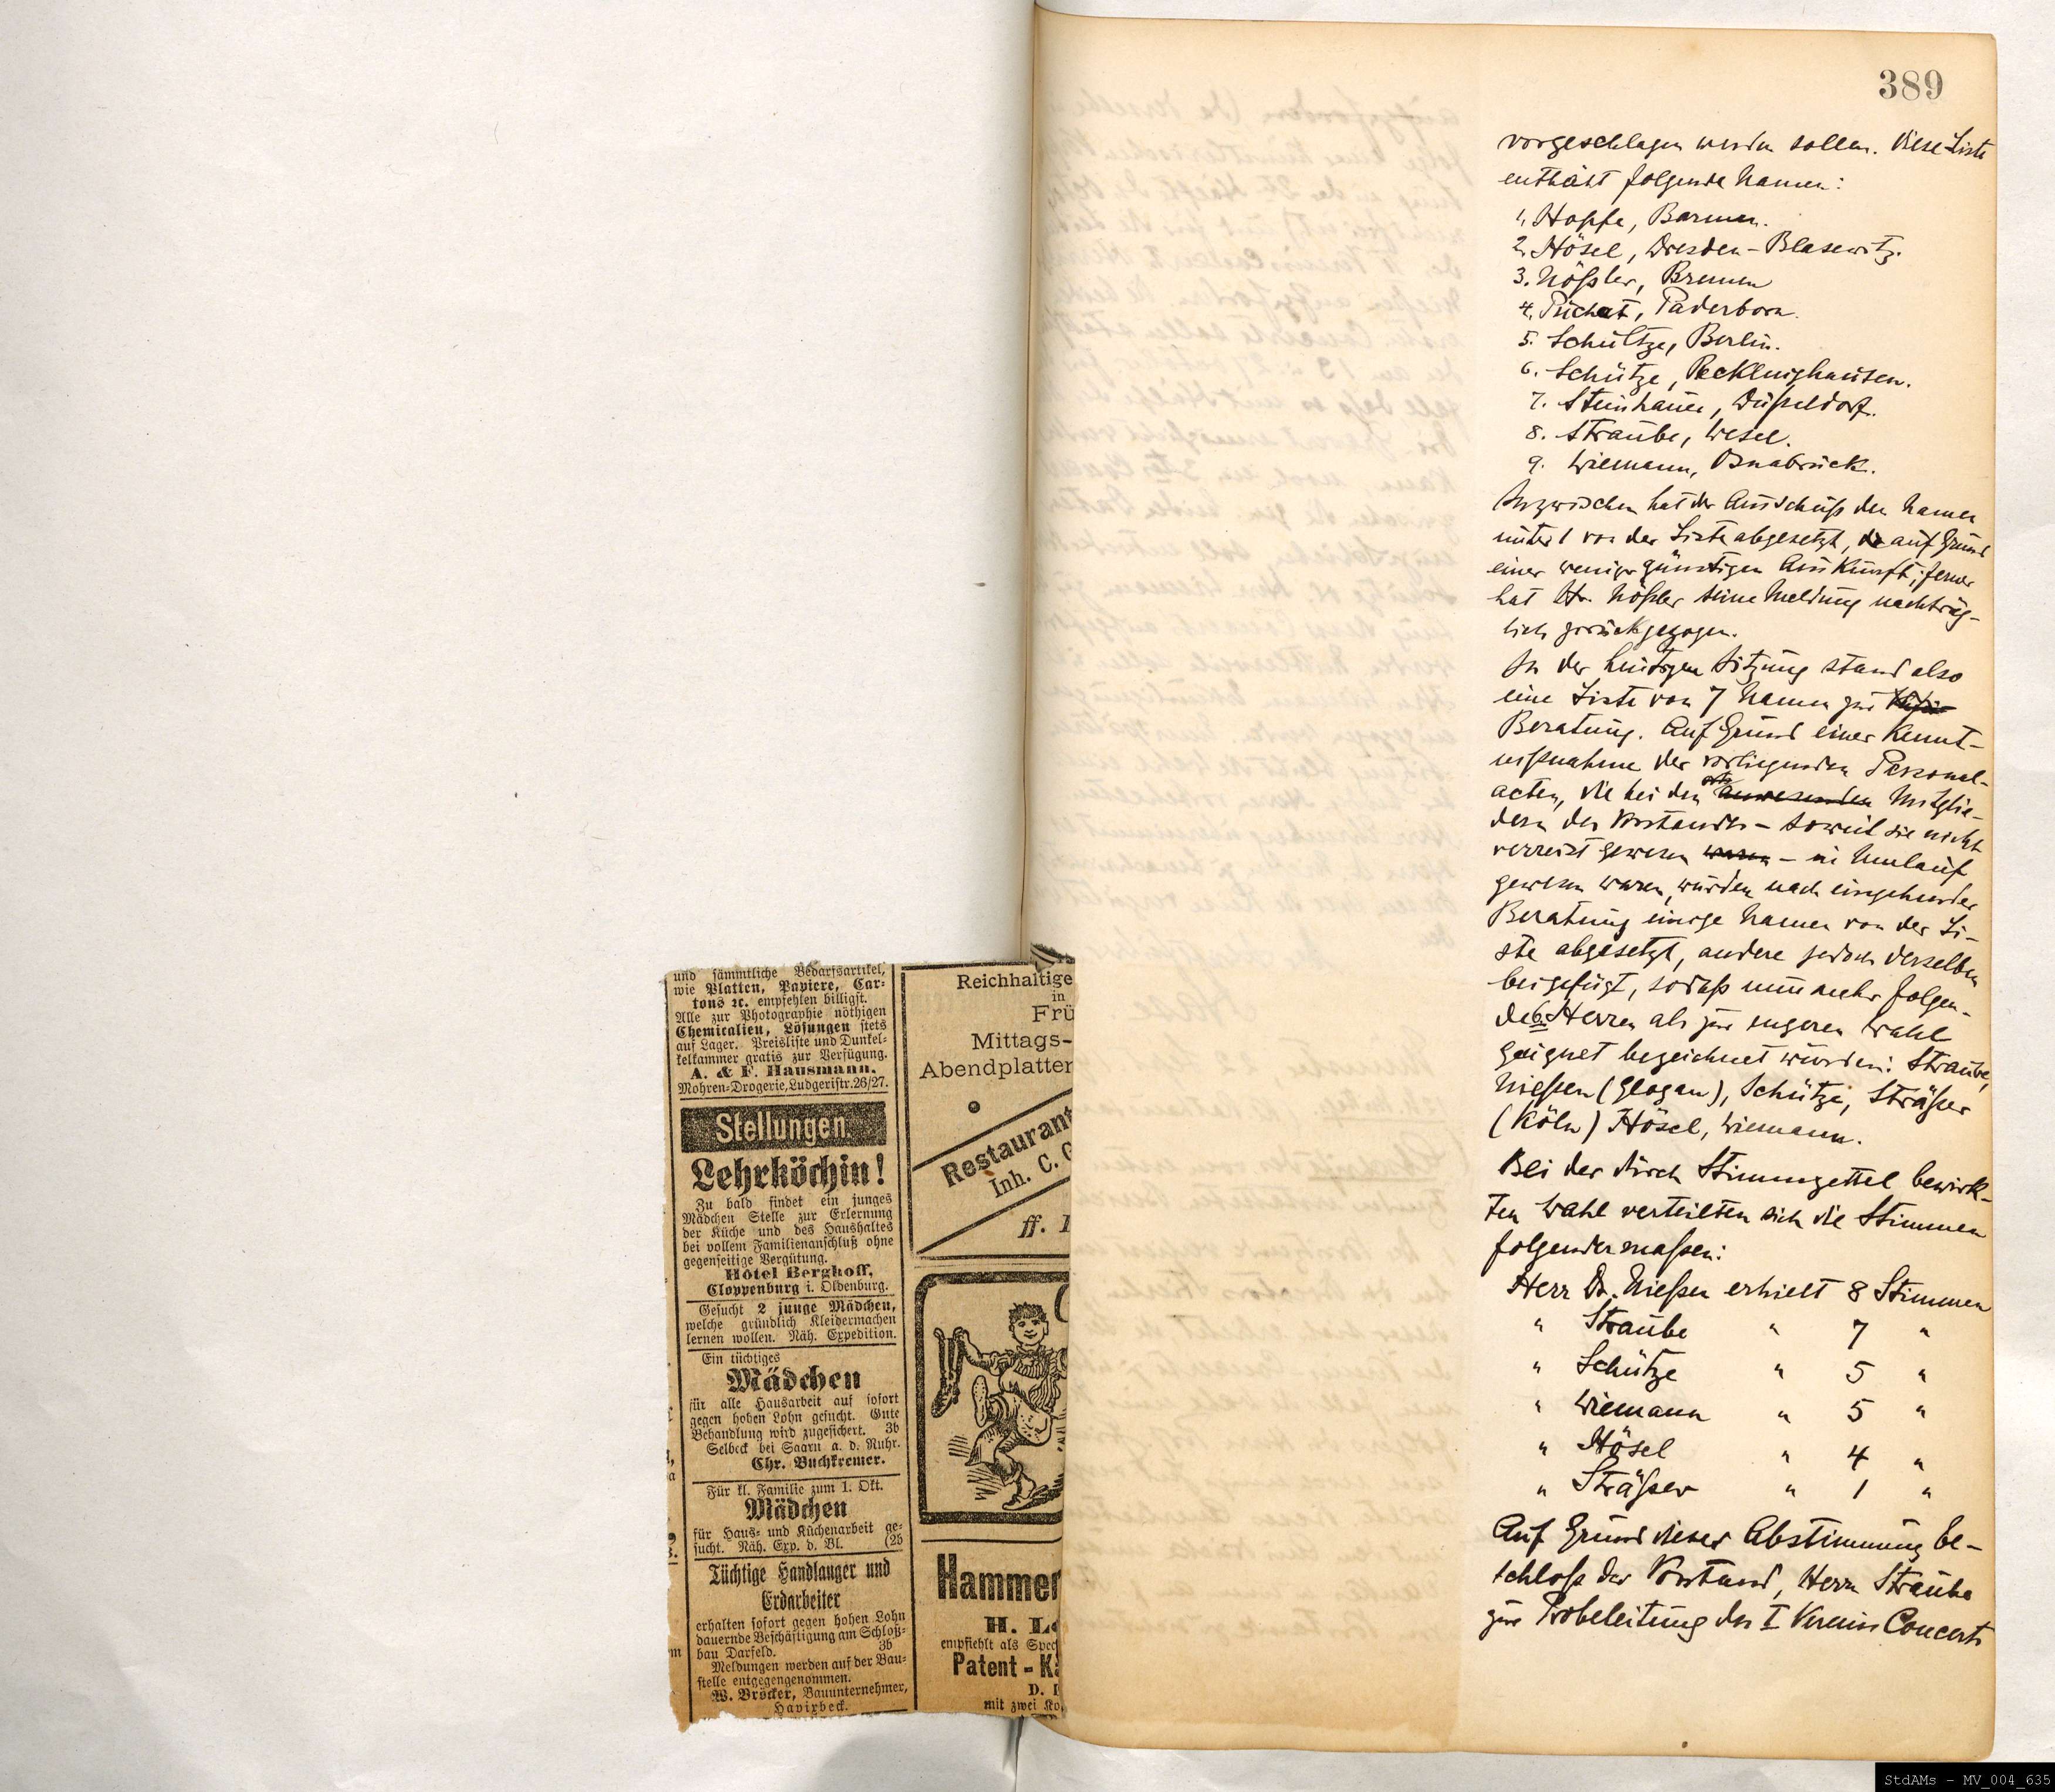 389
vorgeschlagen werden sollen. Diese Liste
enthält folgende Namen:
1. Hopfe, Barmen.
2. Hösel, Dresden-Blasewitz.
3. Nößler, Bremen
4. Püchat, Paderborn.
5. Schultze, Berlin.
6. Schütze, Recklinghausen.
7. Steinhauer, Düsseldorf.
8. Straube, Wesel.
9. Wiemann, Osnabrück.
Inzwischen hat der Ausschuß den Namen
unter 1 von der Liste abgesetzt, auf Grund
einer weniger günstigen Auskunft; ferner
hat Hr. Nößler seine Meldung nachträg-
lich zurückgezogen.
In der heutigen Sitzung stand also
eine Liste von 7 Namen zur
Beratung. Auf Grund einer Kennt-
nißnahme der vorliegenden Personal-
acten, die bei den anwesenden Mitglie-
dern des Vorstandes - soweit sie nicht
verreist gewesen waren - in Umlauf
gewesen waren, wurden nach eingehender
Beratung einige Namen von der Li-
ste abgesetzt, andere jedoch derselben
beigefügt, sodaß nunmehr folgen-
de 6 Herren als zur engeren Wahl
geeignet bezeichnet wurden: Straube,
Nießen (Glogau), Schütze, Sträßer
(Köln) Hösel, Wiemann.
Bei der durch Stimmzettel bewirk-
ten Wahl verteilten sich die Stimmen
folgendermaßen:
Herr Dr. Nießen erhielt 8 Stimmen
" Straube " 7 "
" Schütze " 5 "
" Wiemann " 5 "
" Hösel " 4 "
" Sträßer " 1 "
Auf Grund dieser Abstimmung be-
schloß der Vorstand, Herrn Straube
zur Probeleitung des I Vereins Concerts
und sämmtliche Bedarfsartikel,
wie Platten, Papiere, Car-
tons ꝛc. empfehlen billigst.
Alle zur Photographie nöthigen
Chemicalien, Lösungen stets
auf Lager. Preisliste und Dunkel-
kelkammer gratis zur Verfügung.
A. & F. Hausmann.
Mohren-Drogerie, Ludgeristr. 26/27.
Stellungen
Lehrköchin!
Zu bald findet ein junges
Mädchen Stelle zur Erlernung
der Küche und des Haushaltes
bei vollem Familienanschluß ohne
gegenseitige Vergütung.
Hôtel Berghoff,
Cloppenburg i. Oldenburg.
Gesucht 2 junge Mädchen,
welche gründlich Kleidermachen
lernen wollen. Näh. Expedition.
Ein tüchtiges
Mädchen
für alle Hausarbeit auf sofort
gegen hohen Lohn gesucht. Gute
Behandlung wird zugesichert. 3b
Selbeck bei Saarn a. d. Ruhr.
Chr. Buchkremer.
Für kl. Familie zum 1. Okt.
Mädchen
für Haus- und Küchenarbeit ge-
sucht. Näh. Exp. d. Bl. (2b
Tüchtige Handlanger und
Erdarbeiter
erhalten sofort gegen hohen Lohn
dauernde Beschäftigung am Schloß-
bau Darfeld. 3b
Meldungen werden auf der Bau-
stelle entgegengenommen.
W. Bröcker, Bauunternehmer,
Havixbeck.
Reichhaltige
in
Frü
Mittags-
Abendplatten
Restaurant
Inh. C.
ff.
Hammer
H. L
empfiehlt als Spec
Patent - K
D.
mit zwei Ko
StdAMs - MV_004_635